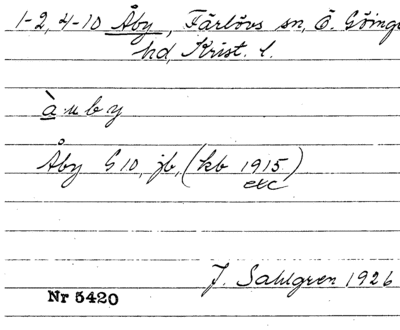 1-2, 4-10 Åby, Färlövs sn, Ö. Göinge
hd, Krist. l.
àuby
Åby G 10, jb, (kb 1915)
etc
J. Sahlgren 1926
Nr 5420